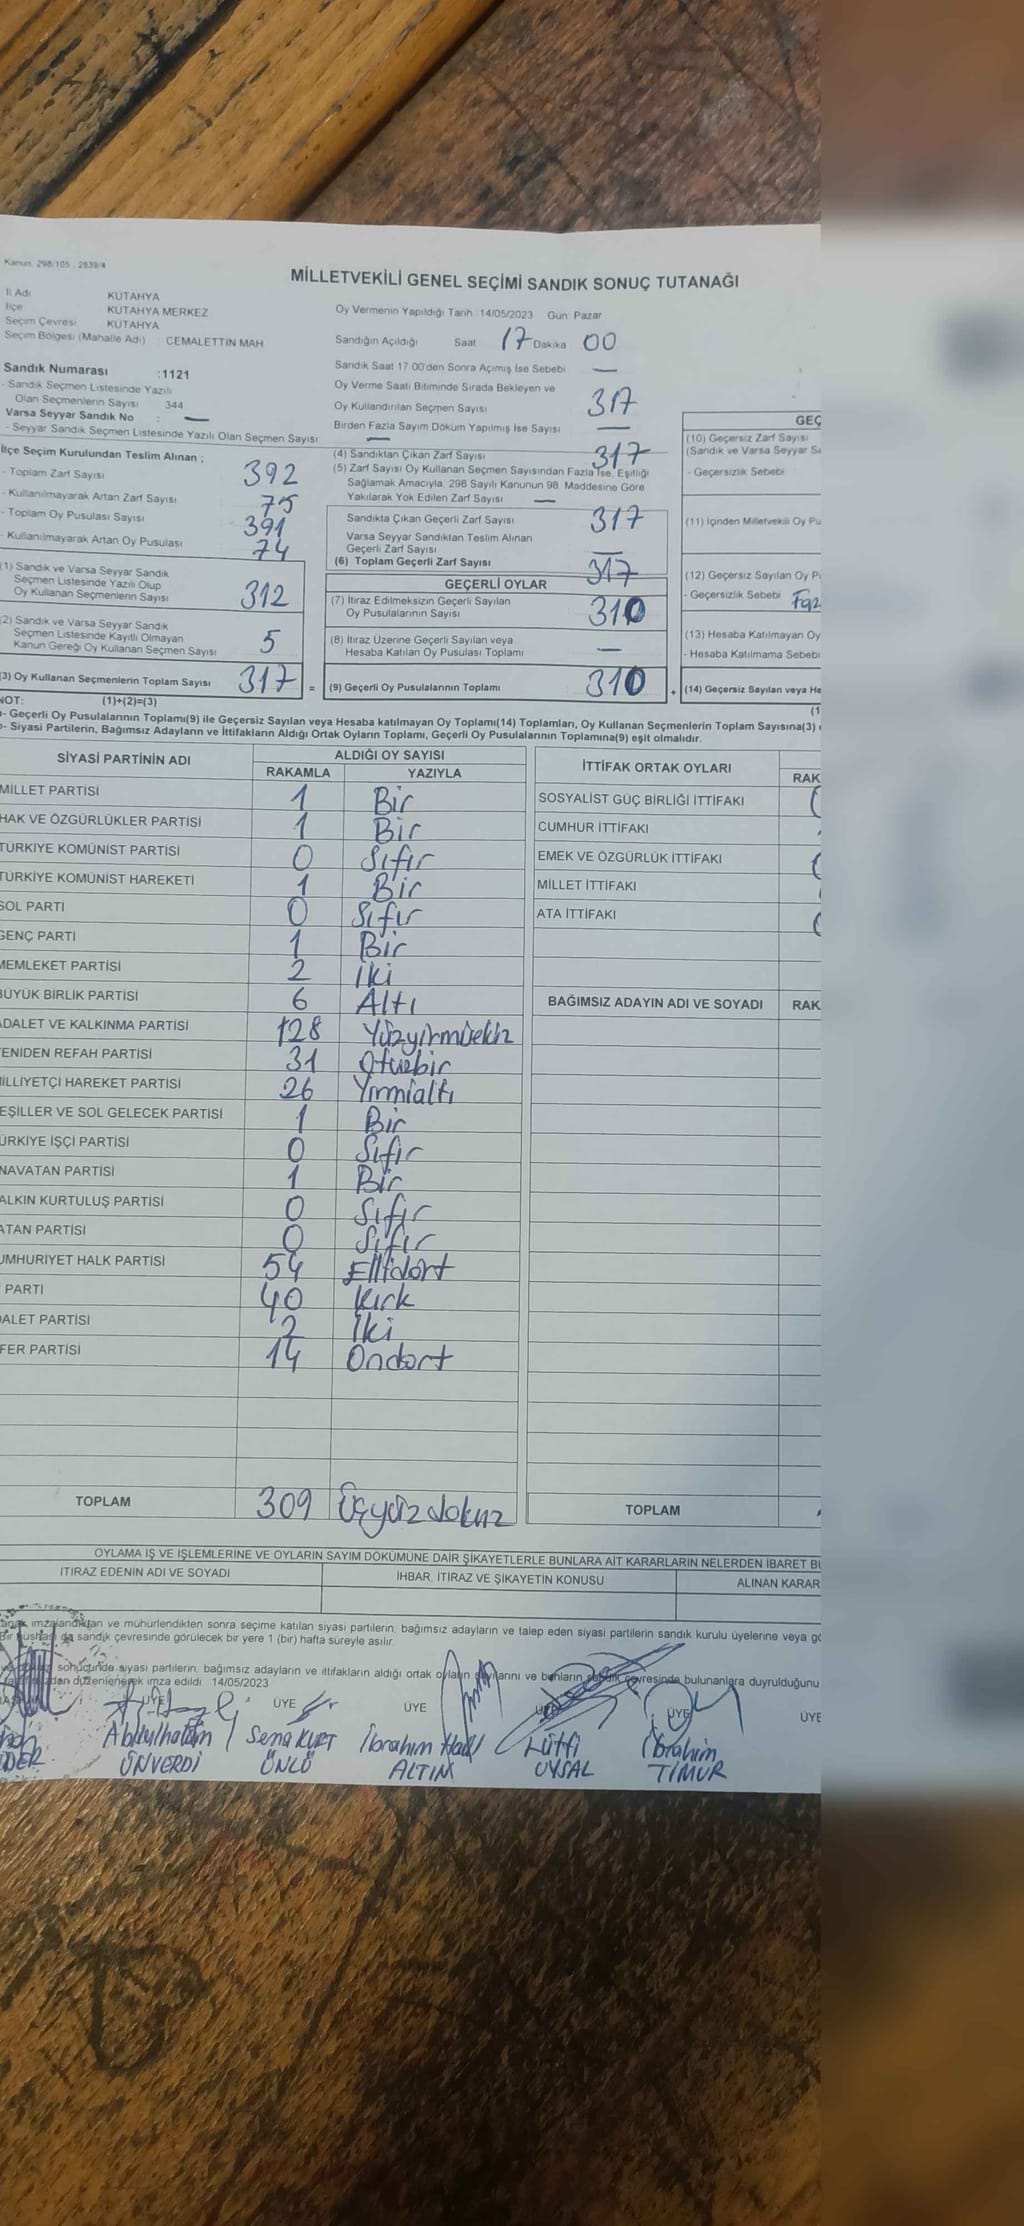 Kanun: 298/105, 2839/4
MİLLETVEKİLİ GENEL SEÇİMİ SANDIK SONUÇ TUTANAĞI
İl Adı KÜTAHYA
İlçe KÜTAHYA MERKEZ
Seçim Çevresi KÜTAHYA
Seçim Bölgesi (Mahalle Adı) : CEMALETTİN MAH
Sandık Numarası :1121
- Sandık Seçmen Listesinde Yazılı
Olan Seçmenlerin Sayısı 344
Varsa Seyyar Sandık No : —
- Seyyar Sandık Seçmen Listesinde Yazılı Olan Seçmen Sayısı —
Oy Vermenin Yapıldığı Tarih: 14/05/2023 Gün: Pazar
Sandığın Açıldığı Saat 17 Dakika 00
Sandık Saat 17.00'den Sonra Açımış İse Sebebi —
Oy Verme Saati Bitiminde Sırada Bekleyen ve
Oy Kullandırılan Seçmen Sayısı 317
Birden Fazla Sayım Döküm Yapılmış İse Sayısı —
İlçe Seçim Kurulundan Teslim Alınan ;
- Toplam Zarf Sayısı 392
- Kullanılmayarak Artan Zarf Sayısı 75
- Toplam Oy Pusulası Sayısı 391
- Kullanılmayarak Artan Oy Pusulası 74
(1) Sandık ve Varsa Seyyar Sandık
Seçmen Listesinde Yazılı Olup
Oy Kullanan Seçmenlerin Sayısı 312
(2) Sandık ve Varsa Seyyar Sandık
Seçmen Listesinde Kayıtlı Olmayan
Kanun Gereği Oy Kullanan Seçmen Sayısı 5
(3) Oy Kullanan Seçmenlerin Toplam Sayısı 317 =
NOT: (1)+(2)=(3)
(4) Sandıktan Çıkan Zarf Sayısı 317
(5) Zarf Sayısı Oy Kullanan Seçmen Sayısından Fazla İse, Eşitliği
Sağlamak Amacıyla, 298 Sayılı Kanunun 98. Maddesine Göre
Yakılarak Yok Edilen Zarf Sayısı —
Sandıkta Çıkan Geçerli Zarf Sayısı 317
Varsa Seyyar Sandıktan Teslim Alınan
Geçerli Zarf Sayısı —
(6) Toplam Geçerli Zarf Sayısı 317
GEÇERLİ OYLAR
(7) İtiraz Edilmeksizin Geçerli Sayılan
Oy Pusulalarının Sayısı 310
(8) İtiraz Üzerine Geçerli Sayılan veya
Hesaba Katılan Oy Pusulası Toplamı —
(9) Geçerli Oy Pusulalarının Toplamı 310 +
GEÇ
(10) Geçersiz Zarf Sayısı
(Sandık ve Varsa Seyyar
- Geçersizlik Sebebi
(11) İçinden Milletvekili Oy
(12) Geçersiz Sayılan Oy
- Geçersizlik Sebebi
(13) Hesaba Katılmayan Oy
- Hesaba Katılmama Sebebi
(14) Geçersiz Sayılan veya
- Geçerli Oy Pusulalarının Toplamı(9) ile Geçersiz Sayılan veya Hesaba katılmayan Oy Toplamı(14) Toplamları, Oy Kullanan Seçmenlerin Toplam Sayısına(3)
- Siyasi Partilerin, Bağımsız Adayların ve İttifakların Aldığı Ortak Oyların Toplamı, Geçerli Oy Pusulalarının Toplamına(9) eşit olmalıdır.
SİYASİ PARTİNİN ADI ALDIĞI OY SAYISI
RAKAMLA YAZIYLA
MİLLET PARTİSİ 1 Bir
HAK VE ÖZGÜRLÜKLER PARTİSİ 1 Bir
TÜRKİYE KOMÜNİST PARTİSİ 0 Sıfır
TÜRKİYE KOMÜNİST HAREKETİ 1 Bir
SOL PARTİ 0 Sıfır
GENÇ PARTİ 1 Bir
MEMLEKET PARTİSİ 2 İki
BÜYÜK BİRLİK PARTİSİ 6 Altı
ADALET VE KALKINMA PARTİSİ 128
YENİDEN REFAH PARTİSİ 31 Otuzbir
MİLLİYETÇİ HAREKET PARTİSİ 26 Yirmialtı
YEŞİLLER VE SOL GELECEK PARTİSİ 1 Bir
TÜRKİYE İŞÇİ PARTİSİ 0 Sıfır
ANAVATAN PARTİSİ 1 Bir
HALKIN KURTULUŞ PARTİSİ 0 Sıfır
VATAN PARTİSİ 0 Sıfır
CUMHURİYET HALK PARTİSİ 54 Ellidört
PARTİ 40 Kırk
ADALET PARTİSİ 2 İki
ZAFER PARTİSİ 14 Ondört
TOPLAM 309 Üçyüz dokuz
İTTİFAK ORTAK OYLARI RAK
SOSYALİST GÜÇ BİRLİĞİ İTTİFAKI
CUMHUR İTTİFAKI
EMEK VE ÖZGÜRLÜK İTTİFAKI
MİLLET İTTİFAKI
ATA İTTİFAKI
BAĞIMSIZ ADAYIN ADI VE SOYADI RAK
TOPLAM
OYLAMA İŞ VE İŞLEMLERİNE VE OYLARIN SAYIM DÖKÜMÜNE DAİR ŞİKAYETLERLE BUNLARA AİT KARARLARIN NELERDEN İBARET
İTİRAZ EDENİN ADI VE SOYADI İHBAR, İTİRAZ VE ŞİKAYETİN KONUSU ALINAN KARAR
imzalandıktan ve mühürlendikten sonra seçime katılan siyasi partilerin, bağımsız adayların ve talep eden siyasi partilerin sandık kurulu üyelerine veya
Bir nüshası da sandık çevresinde görülecek bir yere 1 (bir) hafta süreyle asılır.
sonucunda siyasi partilerin, bağımsız adayların ve ittifakların aldığı ortak oyların sayılarını ve bunların sandık çevresinde bulunanlara duyrulduğunu
düzenlenerek imza edildi. 14/05/2023
ÜYE ÜYE ÜYE ÜYE ÜYE ÜYE
Abdulhalim Sema KURT İbrahim Halil Lütfi İbrahim
ÜNVERDİ ÖNLÜ ALTIN UYSAL TİMUR